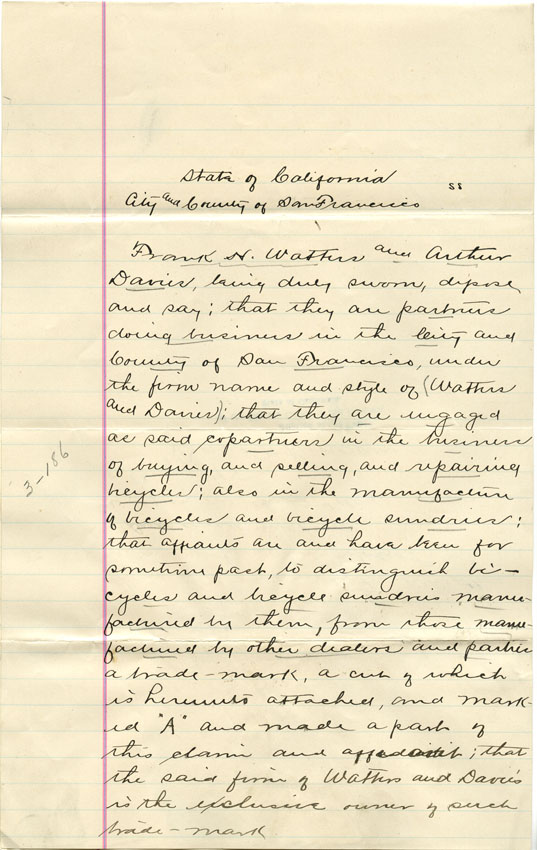 State of California
ss
City and County of San Francisco
Frank H. Watters and Arthur
Davies, being duly sworn, depose
and say; that they are partners
doing business in the City and
County of San Francisco, under
the firm name and style of (Watters
and Davies); that they are engaged
as said copartners in the business
of buying, and selling, and repairing
bicycles; also in the manufacture
of bicycles and bicycle sundries;
that affiants are and have been for
sometime past, to distinguish bi-
cycles and bicycle sundries manu-
factured by them, from those manu-
factured by other dealers and parties
a trade-mark, a cut of which
is hereunto attached, and mark-
ed "A" and made a part of
this claim and affidavit; that
the said firm of Watters and Davies
is the exclusive owner of such
trade-mark
3-186